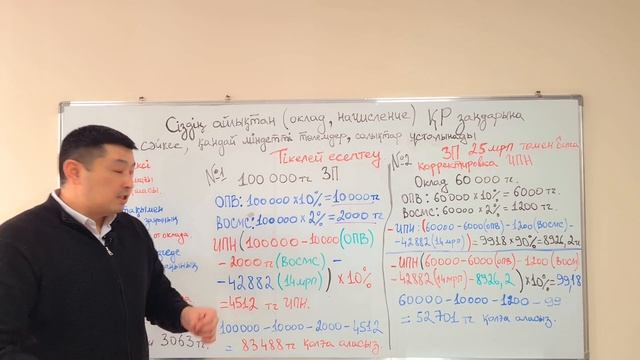 Сіздің айлықтан (оклад, начисление) ҚР заңдарына
сәйкес, қандай міндетті төлемдер, салықтар ұсталынады
Тікелей есептеу
№1
100 000 тг ЗП
ОПВ: 100000 x 10% = 10000 тг
ВОСМС: 100000 x 2% = 2000 тг
ИПН (100000 - 10000 (ОПВ)
- 2000 тг (ВОСМС) -
- 42882 (14 мрп)) x 10%
= 4512 тг ИПН.
100000 - 10000 - 2000 - 4512
= 83488 тг қолға аласыз.
№2 ЗП 25 мрп төмен болса
корректировка ИПН
Оклад 60 000 тг.
ОПВ: 60000 x 10% = 6000 тг.
ВОСМС: 60000 x 2% = 1200 тг.
- ИПН: (60000 - 6000 (ОПВ) - 1200 (ВОСМС) -
- 42882 (14 мрп) = 9918 x 90% = 8926,2 тг
- ИПН (60000 - 6000 (ОПВ) - 1200 (ВОСМ)
- 42882 (14 мрп) - 8926,2) x 10% = 99,18
60000 - 10000 - 1200 - 99
= 52701 тг қолға аласыз.
от оклада
3063 тг.